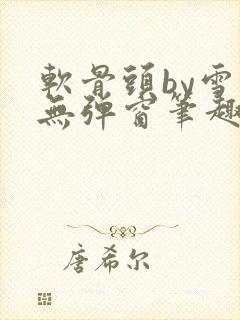 軟骨頭by雪
無彈窗筆趣
唐希尔